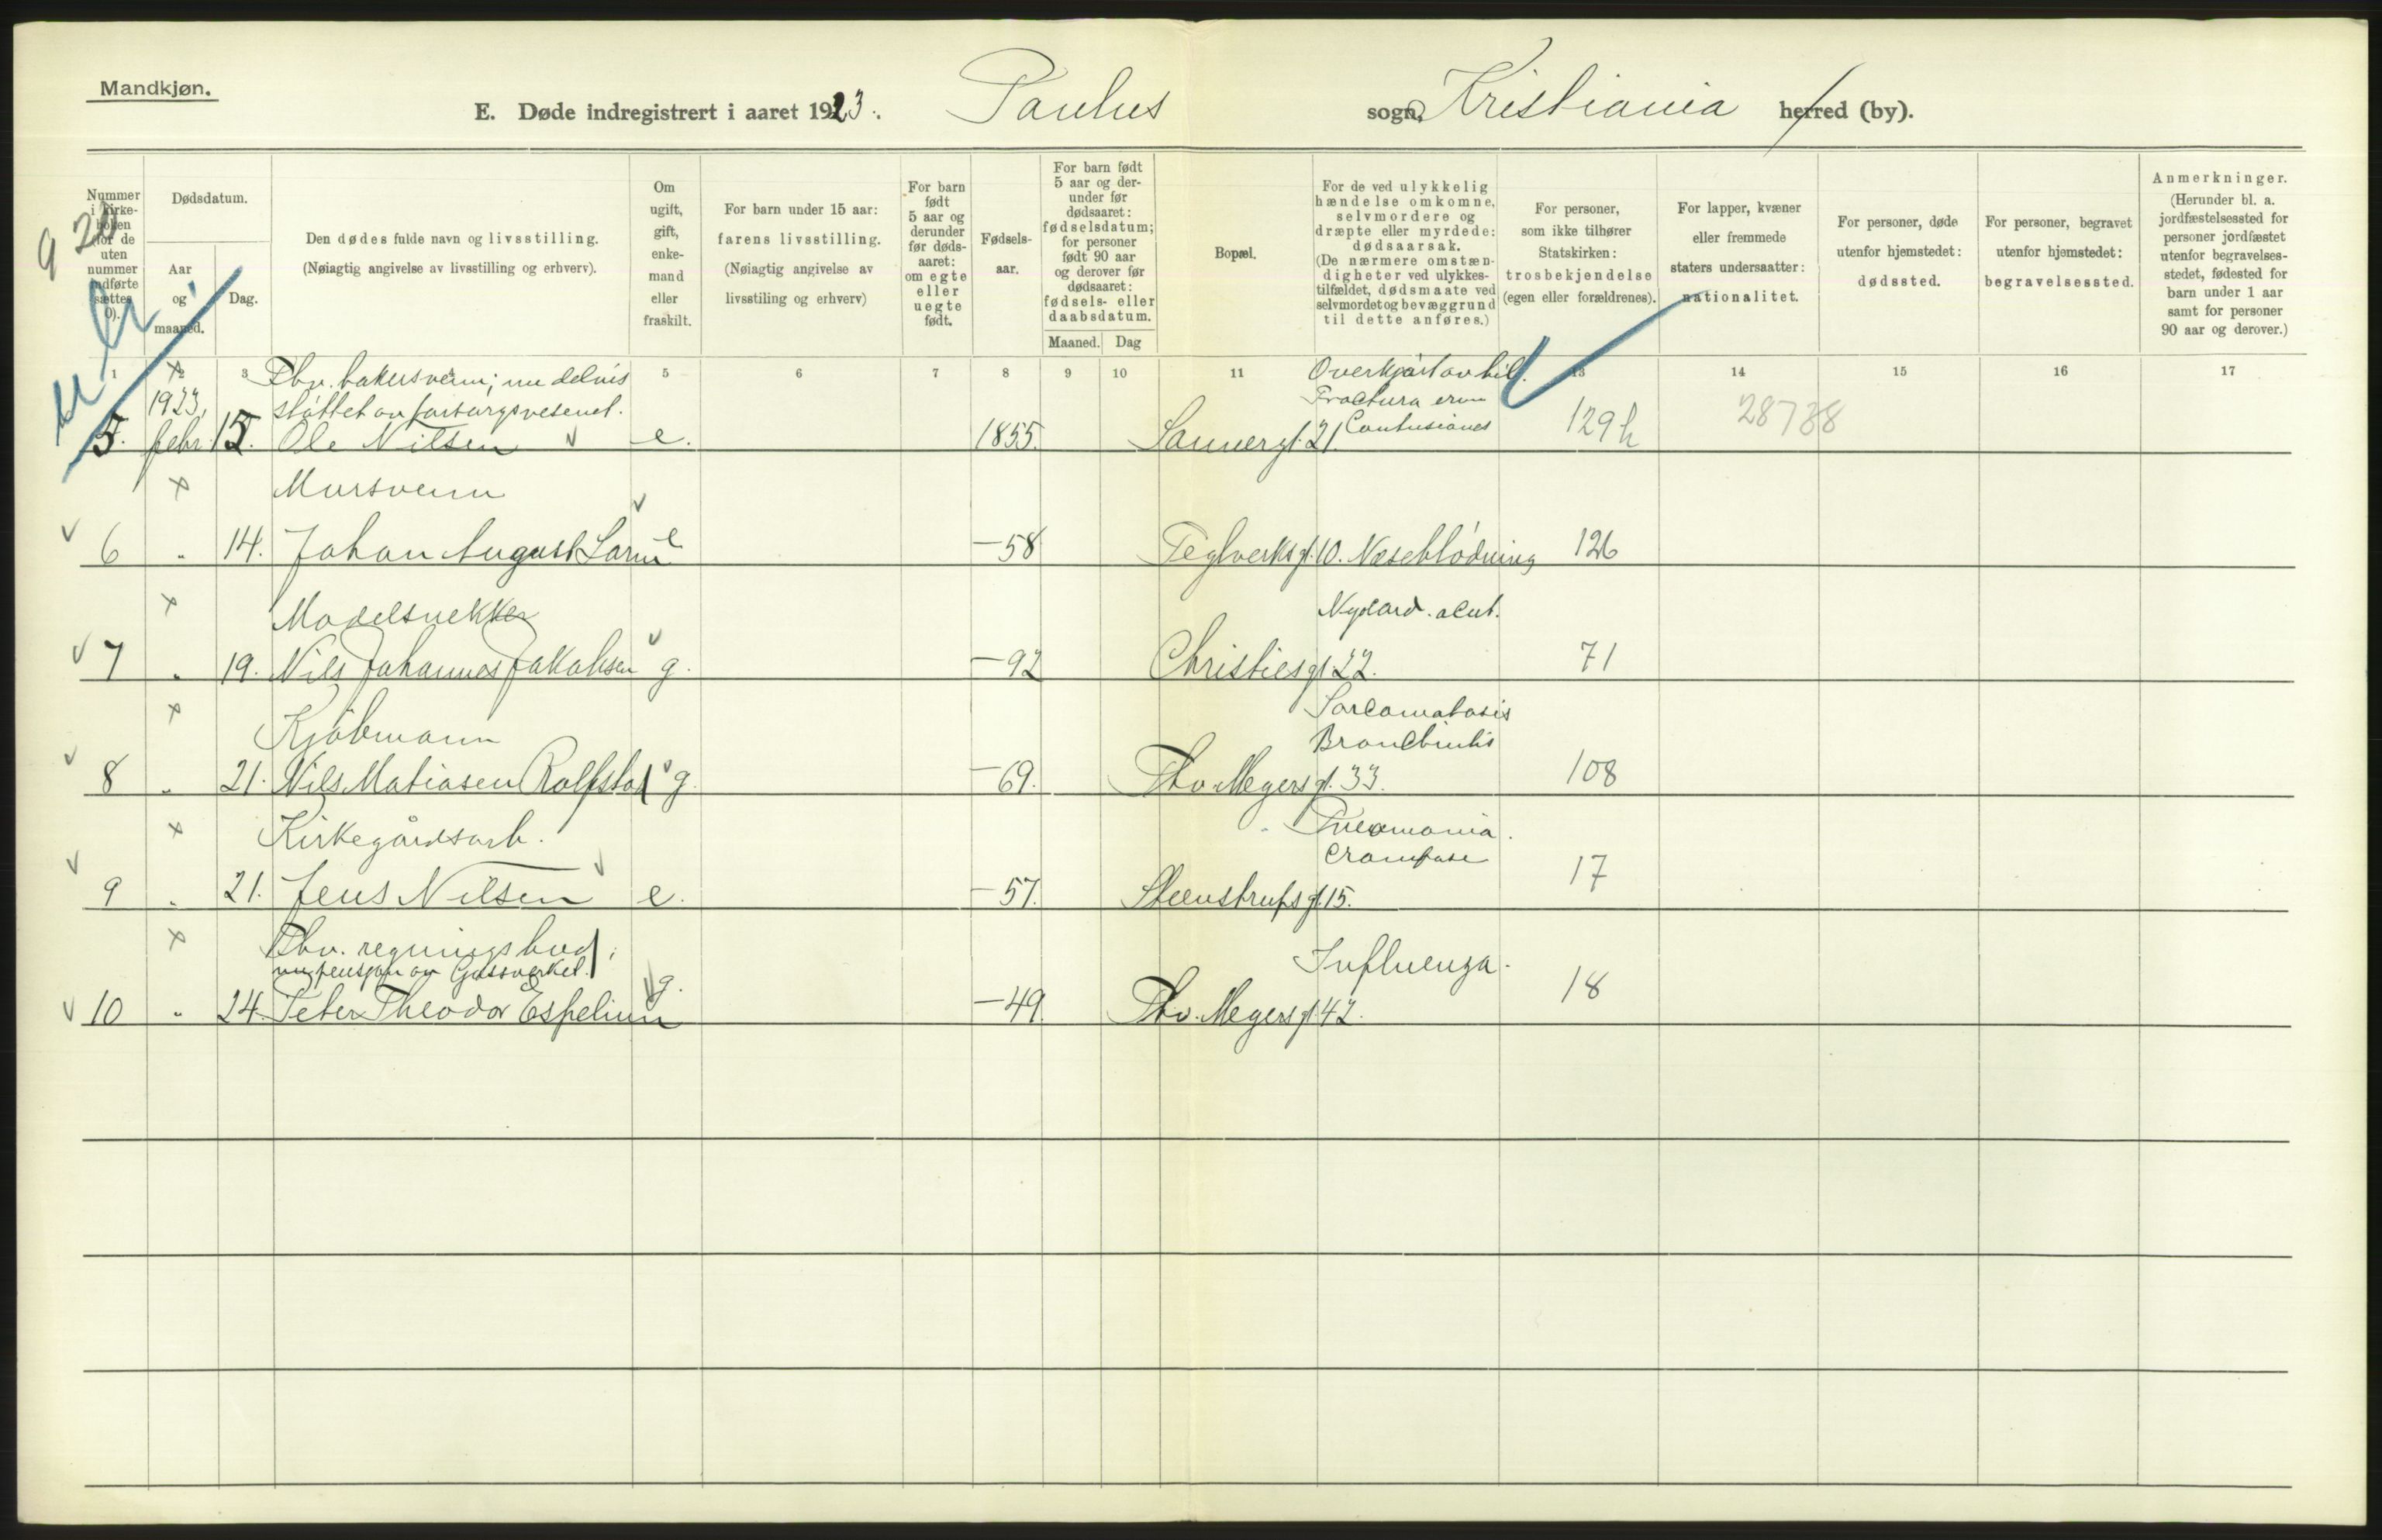 Mandkjøn.
E. Døde indregistrert i aaret 1923. Paulus sogn, Kristiania herred (by).
Nummer i kirkeboken (for de uten nummer indførte sættes 0).
Dødsdatum.
Aar og maaned.
Dag.
Den dødes fulde navn og livsstilling.
(Nøiagtig angivelse av livsstilling og erhverv).
Om ugift, gift, enkemand eller fraskilt.
For barn under 15 aar: farens livsstilling.
(Nøiagtig angivelse av livsstiling og erhverv)
For barn født 5 aar og derunder før dødsaaret: om egte eller uegte født.
Fødselsaar.
For barn født 5 aar og derunder før dødsaaret: fødselsdatum; for personer født 90 aar og derover før dødsaaret: fødsels- eller daabsdatum.
Maaned. Dag
Bopæl.
For de ved ulykkelig hændelse omkomne, selvmordere og dræpte eller myrdede: dødsaarsak.
(De nærmere omstændigheter ved ulykkestilfældet, dødsmaate ved selvmordet og bevæggrund til dette anføres.)
For personer, som ikke tilhører Statskirken: trosbekjendelse (egen eller forældrenes).
For lapper, kvæner eller fremmede staters undersaatter: nationalitet.
For personer, døde utenfor hjemstedet: dødssted.
For personer, begravet utenfor hjemstedet: begravelsessted.
Anmerkninger.
(Herunder bl. a. jordfæstelsessted for personer jordfæstet utenfor begravelsesstedet, fødested for barn under 1 aar samt for personer 90 aar og derover.)
9 20
1 2 3 5 6 7 8 9 10 11 13 14 15 16 17
Fhv. bakersvenn; nu delvis Overkjørt av bil.
1923, støttet av forsorgsvesenet. Fractura crur.
5. febr. 15. Ole Nilsen e. 1855. Sannergt. 21. Contusiones 129h 28738
Mursvenn
6 " 14. Johan August e -58 Teglverksgt. 10. Neseblødning 126
Modelsnekker Nyocard. acut.
7 " 19. Nils Johannes Jakobsen g. -92 Christiesgt. 22. 71
Kjøbmann Sarcomatosis
8 " 21. Nils Matiasen Rolfstad g. -69. Thv. Meyersgt. 33. 108
Kirkegårdsarb. Pneumonia
crouposa
9 " 21. Jens Nilsen e. -57. Steenstrupsgt. 15. 17
Fhv. regningsbud;
nu pensjon av Gassverket. Influenza.
10 " 24. Peter Theodor Espelium g. -49. Thv. Meyersgt. 42. 18